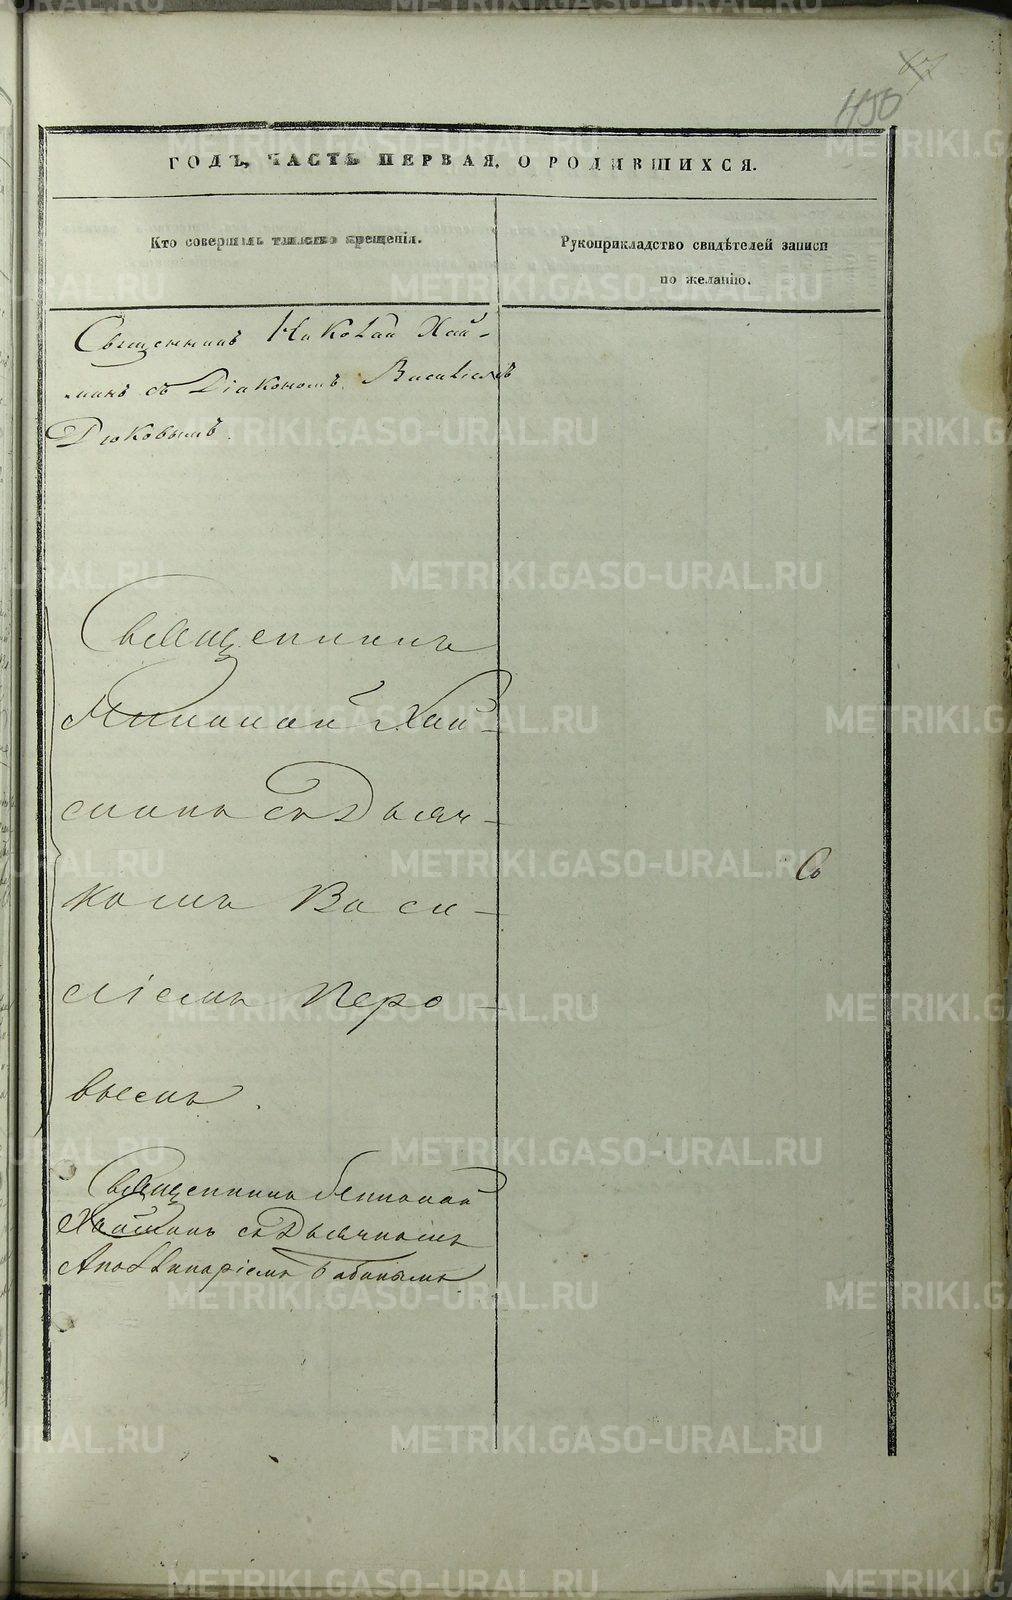 450
ГОДЪ, ЧАСТЬ ПЕРВАЯ, О РОДИВШИХСЯ.
Кто совершалъ таинство крещенія.
Рукоприкладство свидѣтелей записи
по желанію.
Священникъ Николай Хай-
минъ съ Діакономъ Василіемъ
Дюковымъ.
Священникъ
Николай Хай-
минъ съ Дьяч-
комъ Васи-
ліемъ Перо-
вымъ.
Священникъ Николай
Хайминъ съ Дьячкомъ
Аполлинаріемъ Бабинымъ
METRIKI.GASO-URAL.RU